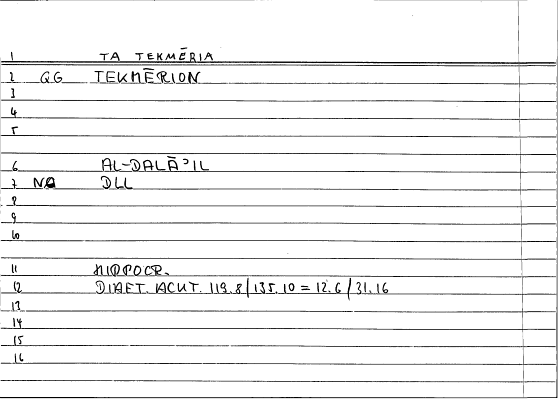 1 TA TEKMĒRIA
2 QG TEKMĒRION
3
4
5
6 AL-DALĀʾIL
7 NQ DLL
8
9
10
11 HIPPOCR.
12 DIAET. ACUT. 119.8/135.10 = 12.6/31.16
13
14
15
16